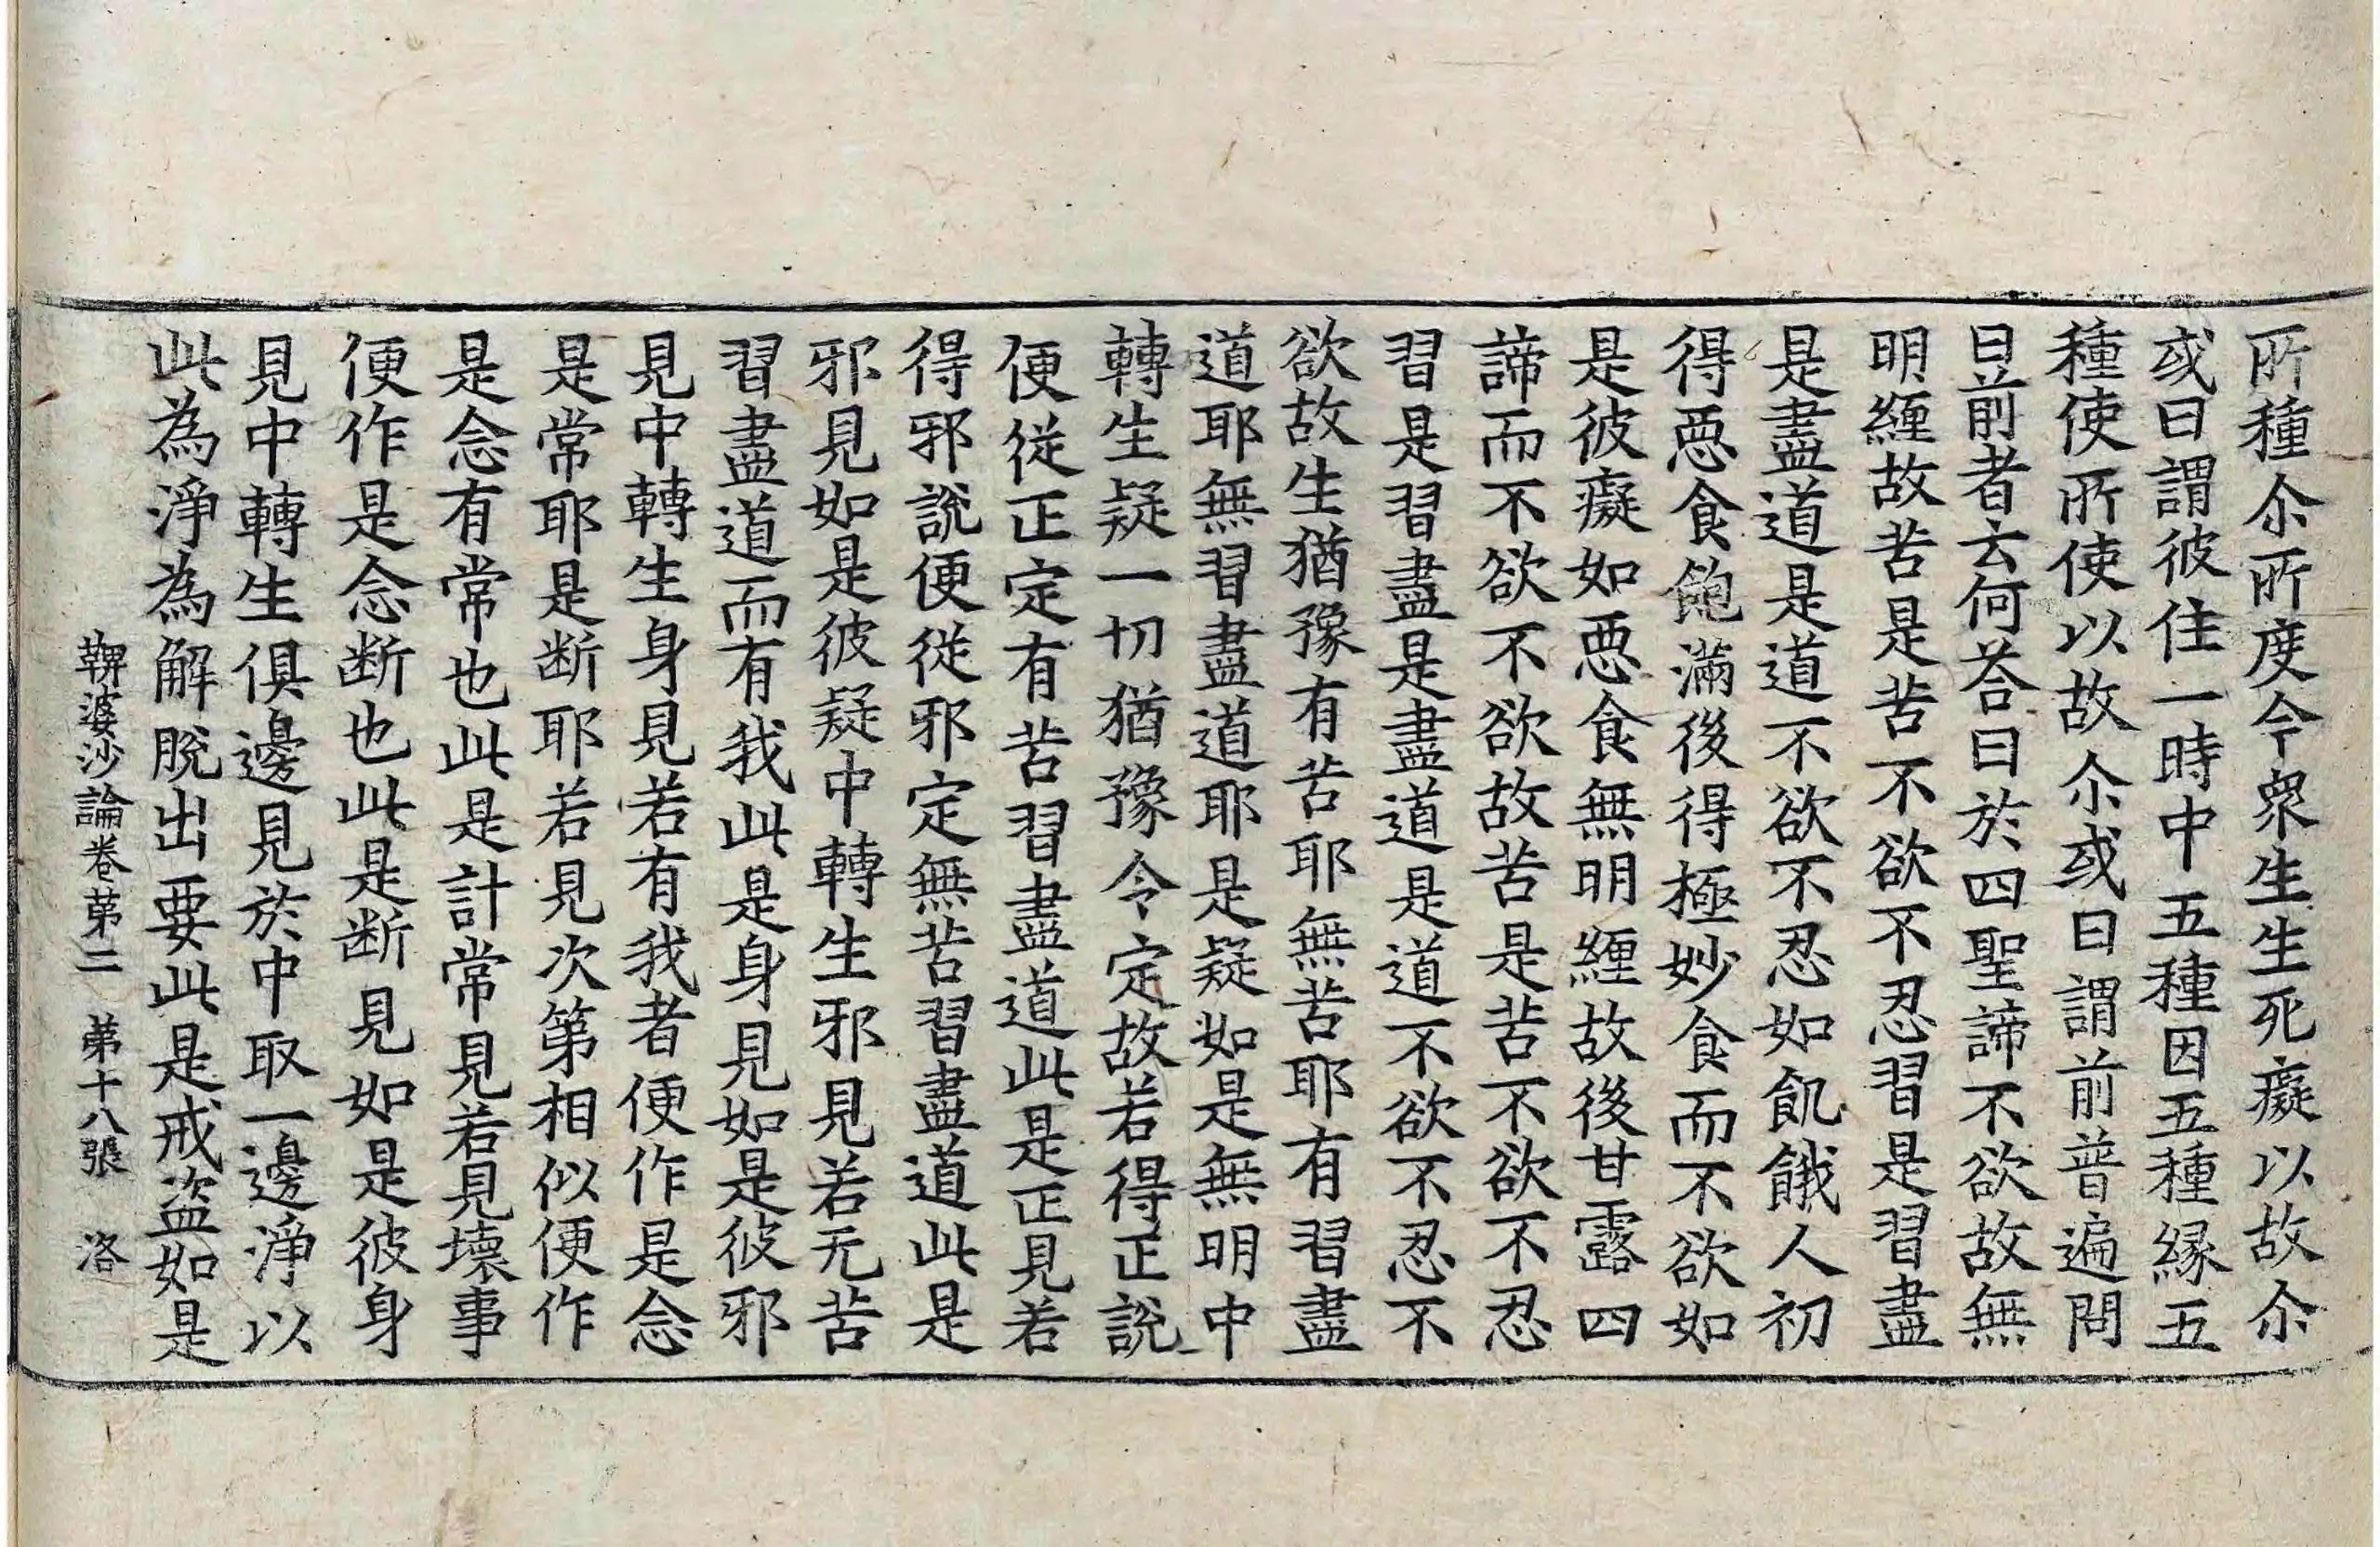 所種尒所度今衆生生死癡以故尒
或曰謂彼住一時中五種因五種縁五
種使所使以故尒或曰謂前普遍問
曰前者云何荅曰於四聖諦不欲故無
明纒故苦是苦不欲不忍習是習盡
是盡道是道不欲不忍如飢餓人初
得惡食飽滿後得極妙食而不欲如
是彼癡如惡食無明纒故後甘露四
諦而不欲不欲故苦是苦不欲不忍
習是習盡是盡道是道不欲不忍不
欲故生猶豫有苦耶無苦耶有習盡
道耶無習盡道耶是疑如是無明中
轉生疑一切猶豫令定故若得正說
便從正定有苦習盡道此是正見若
得邪說便從邪定無苦習盡道此是
邪見如是彼疑中轉生邪見若无苦
習盡道而有我此是身見如是彼邪
見中轉生身見若有我者便作是念
是常耶是断耶若見次第相似便作
是念有常也此是計常見若見壞事
便作是念断也此是断見如是彼身
見中轉生俱邊見於中取一邊淨以
此為淨為解脫出要此是戒盗如是
鞞婆沙論卷苐二 苐十八張 洛